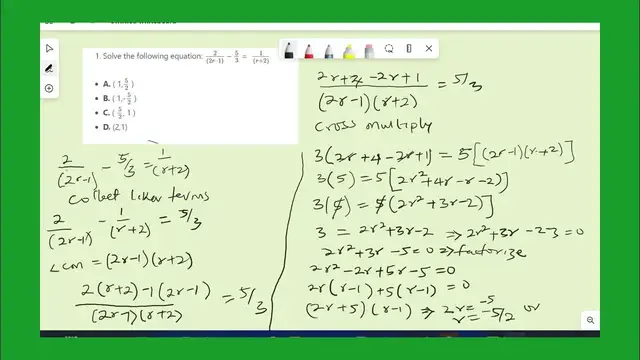 1. Solve the following equation: 2/(2r-1) - 5/3 = 1/(r+2)
A. (1, 5/2)
B. (1, -5/2)
C. (5/2, 1)
D. (2,1)
2/(2r-1) - 5/3 = 1/(r+2)
collect liker terms
2/(2r-1) - 1/(r+2) = 5/3
Lcm = (2r-1)(r+2)
2(r+2)-1(2r-1)/(2r-1)(r+2) = 5/3
2r+4-2r+1/(2r-1)(r+2) = 5/3
cross multiply
3(2r+4-2r+1) = 5[(2r-1)(r+2)]
3(5) = 5[2r²+4r-r-2)]
3(5) = 5(2r²+3r-2)]
3 = 2r²+3r-2 => 2r²+3r-2-3=0
2r²+3r-5=0 => factorize
2r²-2r+5r-5=0
2r(r-1)+5(r-1) = 0
(2r+5)(r-1) => 2r = -5
r = -5/2 or